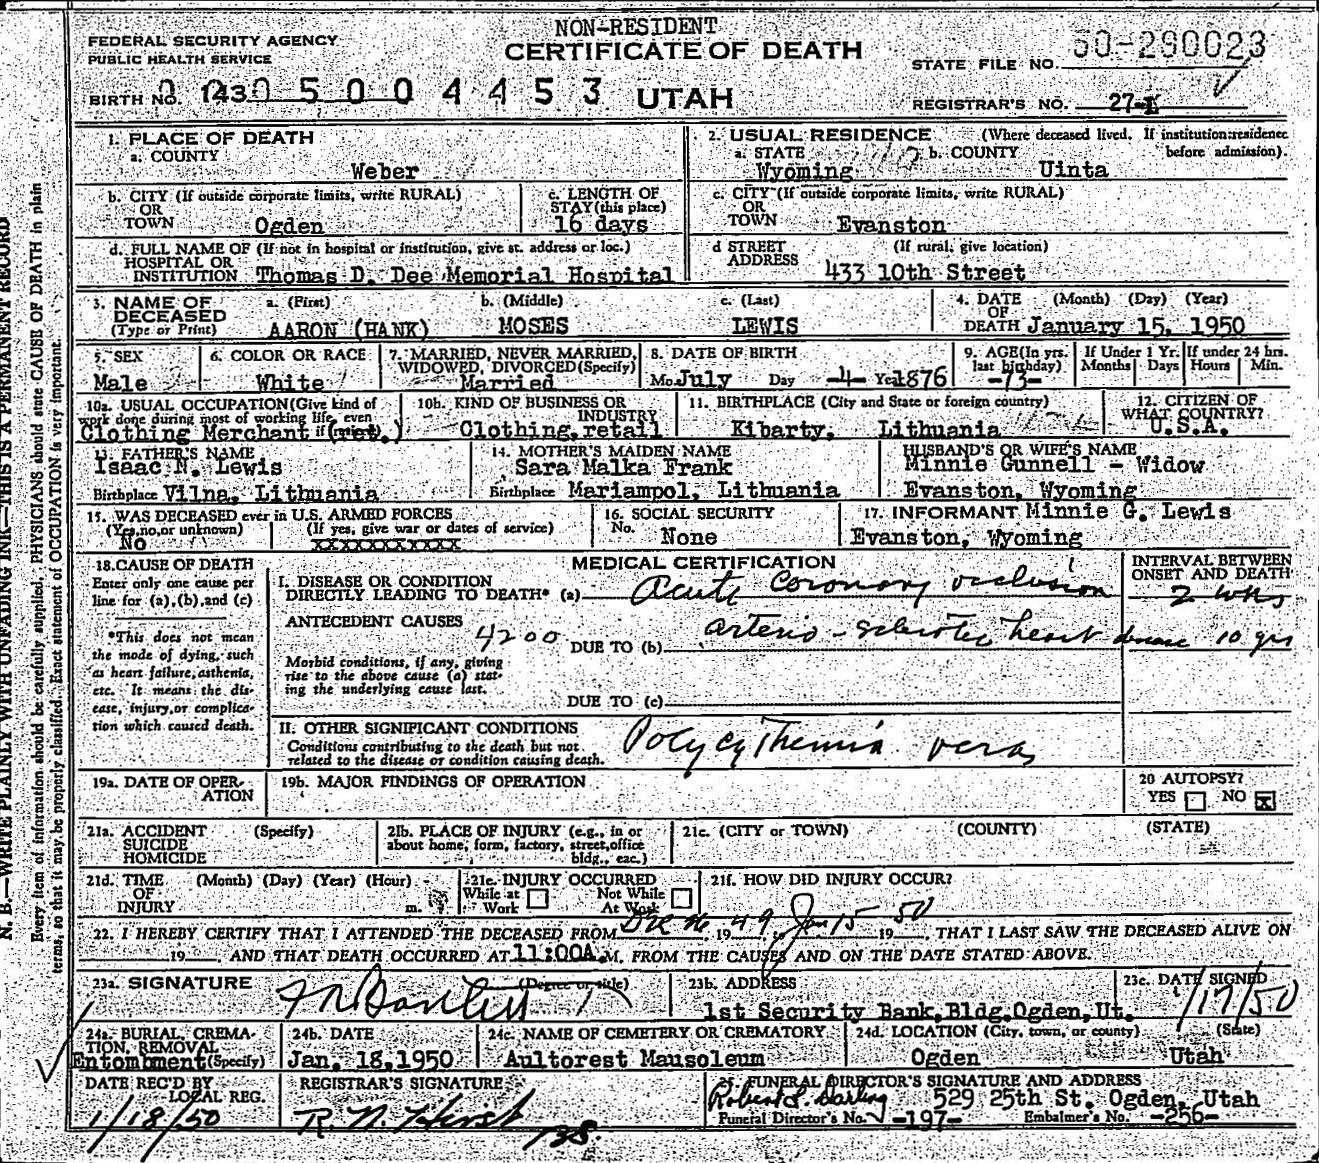 NON-RESIDENT
FEDERAL SECURITY AGENCY
PUBLIC HEALTH SERVICE
CERTIFICATE OF DEATH
STATE FILE NO. 50-290023
BIRTH NO. 5004453 UTAH
REGISTRAR'S NO. 27-
1. PLACE OF DEATH
a. COUNTY
Weber
2. USUAL RESIDENCE (Where deceased lived. If institution:residence before admission).
a. STATE Wyoming b. COUNTY Uinta
b. CITY (If outside corporate limits, write RURAL)
OR
TOWN Ogden
c. LENGTH OF STAY (this place)
16 days
c. CITY (If outside corporate limits, write RURAL)
OR
TOWN Evanston
d. FULL NAME OF (If not in hospital or institution, give st. address or loc.)
HOSPITAL OR
INSTITUTION Thomas D. Dee Memorial Hospital
d STREET ADDRESS (If rural, give location)
433 10th Street
3. NAME OF DECEASED
(Type or Print)
a. (First) b. (Middle) c. (Last)
AARON (HANK) MOSES LEWIS
4. DATE OF DEATH (Month) (Day) (Year)
January 15, 1950
5. SEX
Male
6. COLOR OR RACE
White
7. MARRIED, NEVER MARRIED, WIDOWED, DIVORCED (Specify)
Married
8. DATE OF BIRTH
Mo. July Day 4 Yr. 1876
9. AGE (In yrs. last birthday)
-73-
If Under 1 Yr. Months Days
If under 24 hrs. Hours Min.
10a. USUAL OCCUPATION (Give kind of work done during most of working life, even if retired)
Clothing Merchant (ret.)
10b. KIND OF BUSINESS OR INDUSTRY
Clothing, retail
11. BIRTHPLACE (City and State or foreign country)
Kibarty, Lithuania
12. CITIZEN OF WHAT COUNTRY?
U.S.A.
13. FATHER'S NAME
Isaac N. Lewis
Birthplace Vilna, Lithuania
14. MOTHER'S MAIDEN NAME
Sara Malka Frank
Birthplace Mariampol, Lithuania
HUSBAND'S OR WIFE'S NAME
Minnie Gunnell - Widow
Evanston, Wyoming
15. WAS DECEASED ever in U.S. ARMED FORCES
(Yes, no, or unknown) (If yes, give war or dates of service)
No XXXXXXXXXXX
16. SOCIAL SECURITY
No. None
17. INFORMANT Minnie G. Lewis
Evanston, Wyoming
18. CAUSE OF DEATH
Enter only one cause per line for (a), (b), and (c)
*This does not mean the mode of dying, such as heart failure, asthenia, etc. It means the disease, injury, or complication which caused death.
MEDICAL CERTIFICATION
INTERVAL BETWEEN ONSET AND DEATH
I. DISEASE OR CONDITION
DIRECTLY LEADING TO DEATH* (a) Acute coronary occlusion 2 wks
ANTECEDENT CAUSES
4200
DUE TO (b) arterio-sclerotic heart disease 10 yrs
Morbid conditions, if any, giving rise to the above cause (a) stating the underlying cause last.
DUE TO (c)
II. OTHER SIGNIFICANT CONDITIONS
Conditions contributing to the death but not related to the disease or condition causing death.
Polycythemia vera
19a. DATE OF OPERATION
19b. MAJOR FINDINGS OF OPERATION
20 AUTOPSY?
YES NO X
21a. ACCIDENT (Specify)
SUICIDE
HOMICIDE
21b. PLACE OF INJURY (e.g., in or about home, form, factory, street, office bldg., eac.)
21c. (CITY or TOWN) (COUNTY) (STATE)
21d. TIME (Month) (Day) (Year) (Hour)
OF
INJURY m.
21e. INJURY OCCURRED
While at Work Not While At Work
21f. HOW DID INJURY OCCUR?
22. I HEREBY CERTIFY THAT I ATTENDED THE DECEASED FROM Dec 1949, to Jan 15 1950, THAT I LAST SAW THE DECEASED ALIVE ON
19 , AND THAT DEATH OCCURRED AT 11:00A.M. FROM THE CAUSES AND ON THE DATE STATED ABOVE.
23a. SIGNATURE (Degree or title)
23b. ADDRESS
1st Security Bank, Bldg. Ogden, Ut.
23c. DATE SIGNED
1/17/50
24a. BURIAL, CREMATION, REMOVAL (Specify)
Entombment
24b. DATE
Jan. 18, 1950
24c. NAME OF CEMETERY OR CREMATORY
Aultorest Mausoleum
24d. LOCATION (City, town, or county) (State)
Ogden Utah
DATE REC'D BY LOCAL REG.
1/18/50
REGISTRAR'S SIGNATURE
25. FUNERAL DIRECTOR'S SIGNATURE AND ADDRESS
529 25th St. Ogden, Utah
Funeral Director's No. -197- Embalmer's No. -256-
N. B.—WRITE PLAINLY WITH UNFADING INK—THIS IS A PERMANENT RECORD
Every item of information should be carefully supplied. PHYSICIANS should state CAUSE OF DEATH in plain
terms, so that it may be properly classified. Exact statement of OCCUPATION is very important.